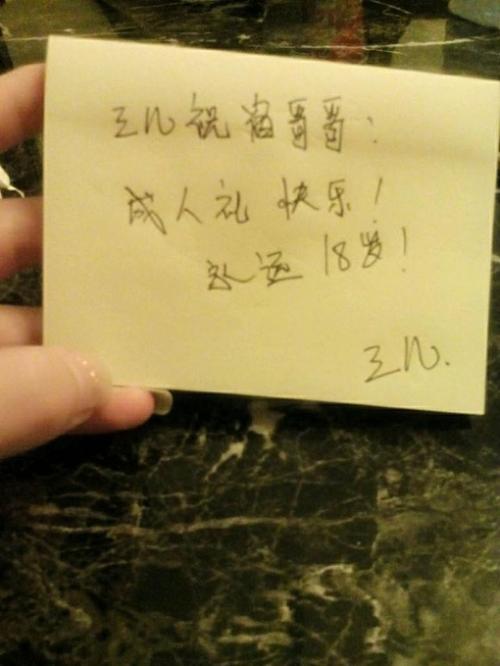 三儿祝哥哥：
成人礼快乐！
永远18岁！
三儿.